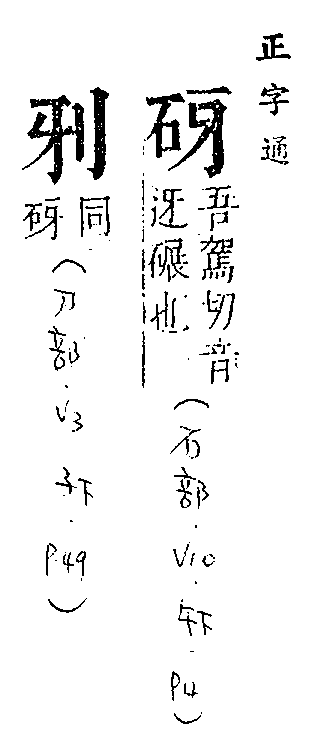 正字通
砑
吾駕切音
迓碾也
(石部·V10·午下·P4)
同
砑
(刀部·V3 子下·P.49)